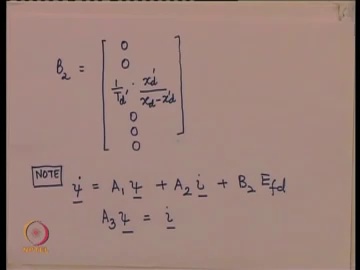 B₂ = [ 0
0
1/T_d' · x_d'/(x_d - x_d')
0
0
0 ]
NOTE ψ̇ = A₁ ψ + A₂ i + B₂ E_fd
A₃ ψ = i
NPTEL